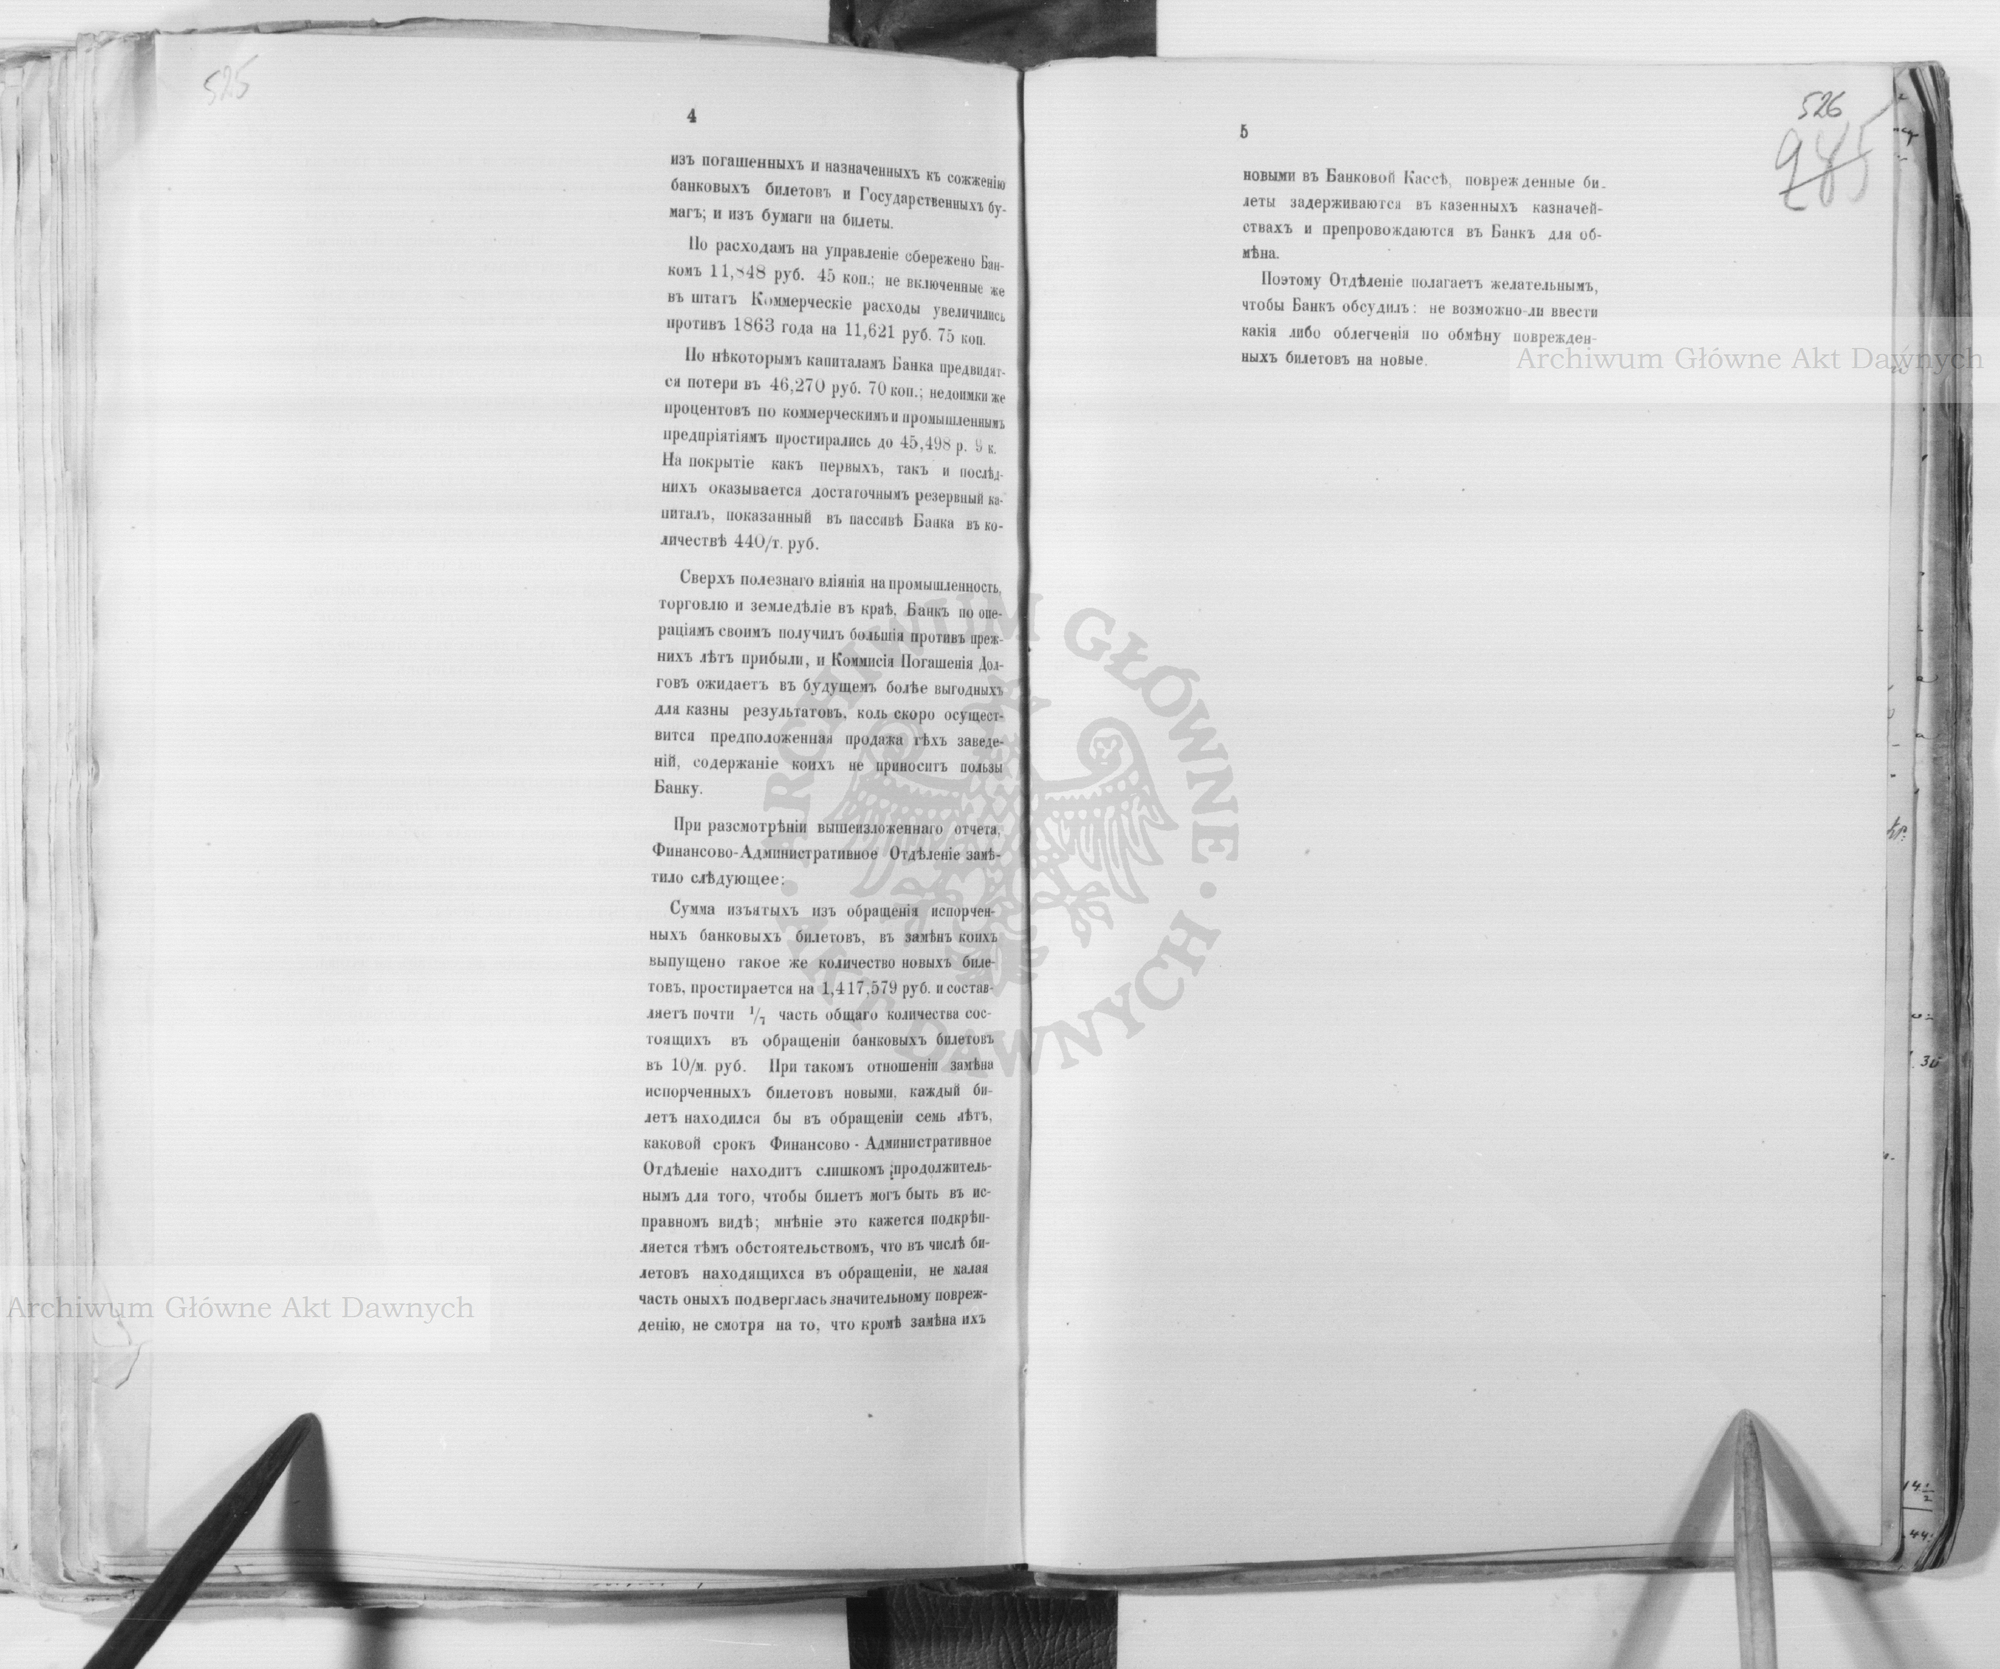 525
4
изъ погашенныхъ и назначенныхъ къ сожженію
банковыхъ билетовъ и Государственныхъ бу-
магъ; и изъ бумаги на билеты.
По расходамъ на управленіе сбережено Бан-
комъ 11,848 руб. 45 коп.; не включенные же
въ штатъ Коммерческіе расходы увеличились
противъ 1863 года на 11,621 руб. 75 коп.
По нѣкоторымъ капиталамъ Банка предвидят-
ся потери въ 46,270 руб. 70 коп.; недоимки же
процентовъ по коммерческимъ и промышленнымъ
предпріятіямъ простирались до 45,498 р. 9 к.
На покрытіе какъ первыхъ, такъ и послѣд-
нихъ оказывается достаточнымъ резервный ка-
питалъ, показанный въ пассивѣ Банка въ ко-
личествѣ 440/т. руб.
Сверхъ полезнаго вліянія на промышленность,
торговлю и земледѣліе въ краѣ, Банкъ по опе-
раціямъ своимъ получилъ большія противъ преж-
нихъ лѣтъ прибыли, и Коммисія Погашенія Дол-
говъ ожидаетъ въ будущемъ болѣе выгодныхъ
для казны результатовъ, коль скоро осущест-
вится предположенная продажа тѣхъ заведе-
ній, содержаніе коихъ не приноситъ пользы
Банку.
При разсмотрѣніи вышеизложеннаго отчета,
Финансово-Административное Отдѣленіе замѣ-
тило слѣдующее:
Сумма изъятыхъ изъ обращенія испорчен-
ныхъ банковыхъ билетовъ, въ замѣнъ коихъ
выпущено такое же количество новыхъ биле-
товъ, простирается на 1,417,579 руб. и состав-
ляетъ почти 1/7 часть общаго количества сос-
тоящихъ въ обращеніи банковыхъ билетовъ
въ 10/м. руб. При такомъ отношеніи замѣна
испорченныхъ билетовъ новыми, каждый би-
летъ находился бы въ обращеніи семь лѣтъ,
каковой срокъ Финансово-Административное
Отдѣленіе находитъ слишкомъ продолжитель-
нымъ для того, чтобы билетъ могъ быть въ ис-
правномъ видѣ; мнѣніе это кажется подкрѣп-
ляется тѣмъ обстоятельствомъ, что въ числѣ би-
летовъ находящихся въ обращеніи, не малая
часть оныхъ подверглась значительному повреж-
денію, не смотря на то, что кромѣ замѣна ихъ
526
285
5
новыми въ Банковой Кассѣ, поврежденные би-
леты задерживаются въ казенныхъ казначей-
ствахъ и препровождаются въ Банкъ для об-
мѣна.
Поэтому Отдѣленіе полагаетъ желательнымъ,
чтобы Банкъ обсудилъ: не возможно-ли ввести
какія либо облегченія по обмѣну поврежден-
ныхъ билетовъ на новые.
Archiwum Główne Akt Dawnych
Archiwum Główne Akt Dawnych
ARCHIWUM GŁÓWNE · AKT DAWNYCH ·